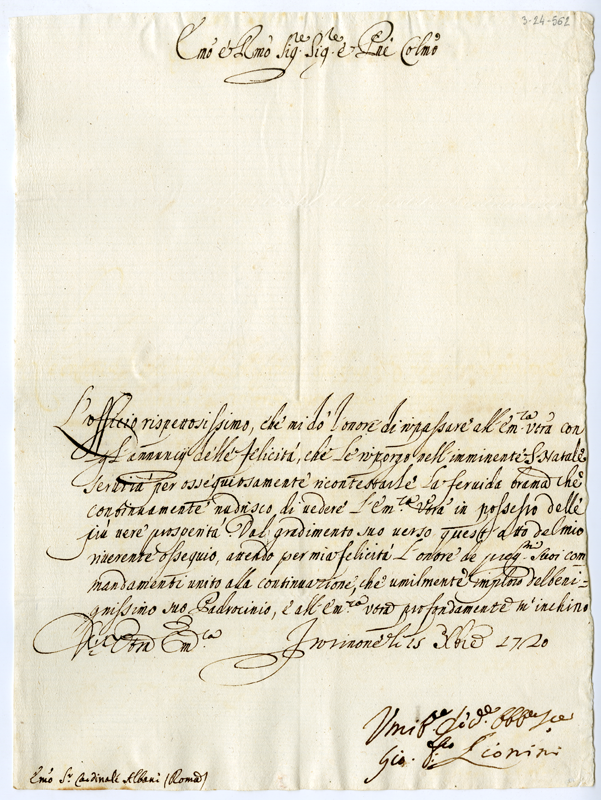 3-24-562
Emo e Rmo Sigre Sigre e Pne Colmo
L'officio rispettosissimo, che mi dò l'onore di ripassare all'Emza Vtra con
gl'annuncij delle felicità, che Le riporgo nell'imminente S. Natale
servirà per ossequiosamente ricontestarle la fervida brama che
continuamente nudrisco, di vedere l'Emza Vtra in possesso delle
più vere prosperità. Dal gradimento suo verso quest'atto del mio
riverente ossequio, attendo per mia felicità l'onore de suoi com
mandamenti unito alla continuazione, che umilmente imploro del beni-
gnissimo suo Padrocinio, e all'Emza Vtra profondamente m'inchino
Di Vtra Emza
Frosinone li 15 Xbre 1720
Umilmo Devmo Obbmo Sre
Gio. Fco Lionini
Emo Sr Cardinale Albani (Roma)